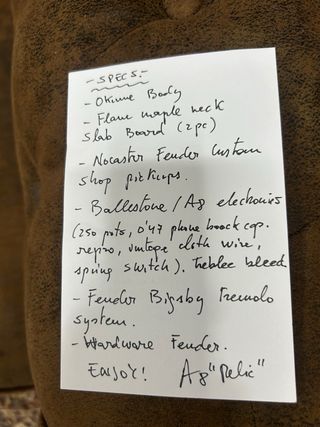 - SPECS: -
- Okume Body
- Flame maple neck
Slab Board (2pc)
- Nocaster Fender Custom
shop pickups.
- Ballestone / Ag electronics
(250 pots, 0'47 phone book cap.
repro, vintage cloth wire,
spring switch). Treblee bleed
- Fender Bigsby Tremolo
system.
- Hardware Fender.
ENJOY! Ag "Relic"